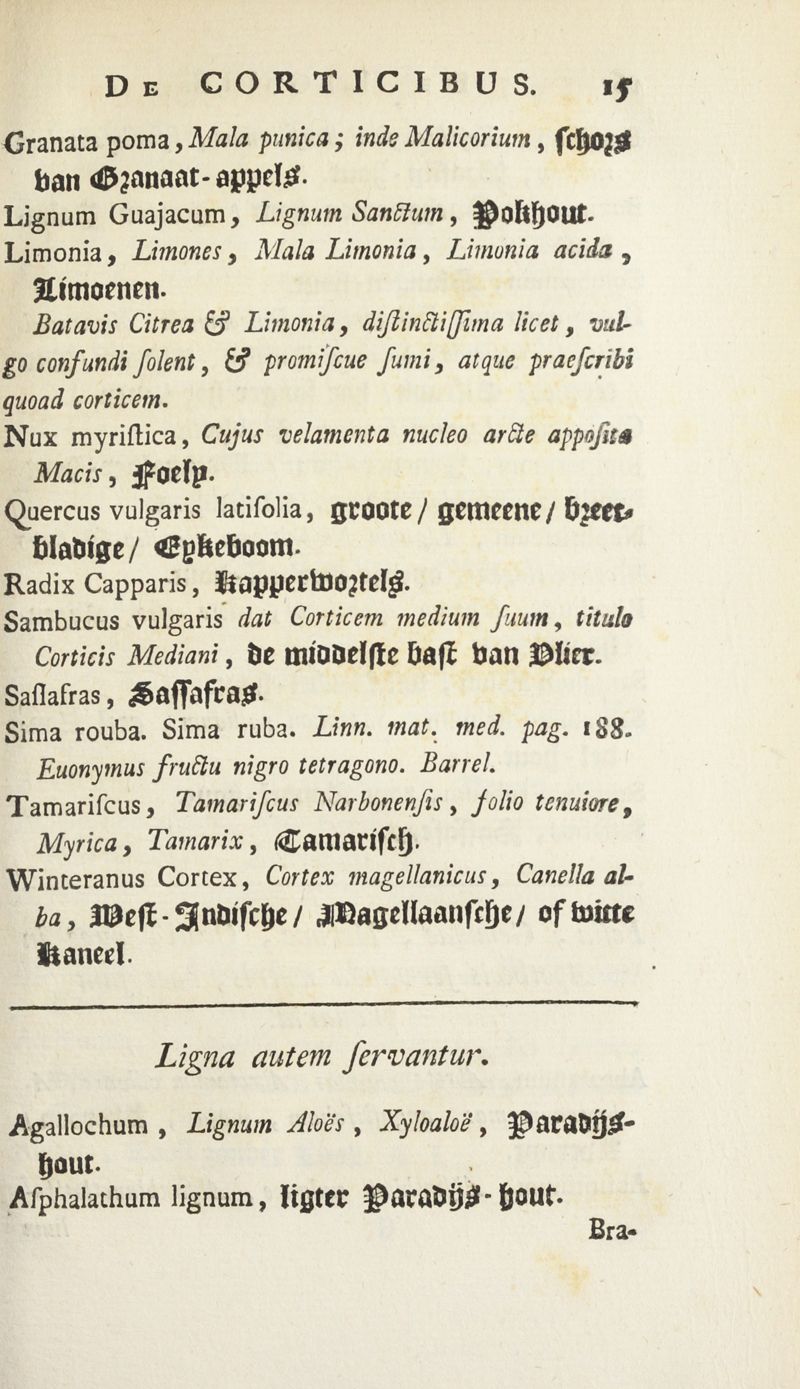 DE CORTICIBUS. 15
Granata poma, Mala punica; inde Malicorium, ſchors
van Granaat-appels.
Lignum Guajacum, Lignum Sanctum, Pokhout.
Limonia, Limones, Mala Limonia, Limonia acida,
Limoenen.
Batavis Citrea & Limonia, diſtinctiſſima licet, vul-
go confundi ſolent, & promiſcue ſumi, atque praeſcribi
quoad corticem.
Nux myriſtica, Cujus velamenta nucleo arcte appoſita
Macis, Foely.
Quercus vulgaris latifolia, groote / gemeene / breet-
bladige / Eykeboom.
Radix Capparis, Kapperwortels.
Sambucus vulgaris dat Corticem medium ſuum, titulo
Corticis Mediani, de middelſte baſt van Vlier.
Saſſafras, Saſſafras.
Sima rouba. Sima ruba. Linn. mat. med. pag. 188.
Euonymus fructu nigro tetragono. Barrel.
Tamariſcus, Tamariſcus Narbonenſis, folio tenuiore,
Myrica, Tamarix, Tamariſch.
Winteranus Cortex, Cortex magellanicus, Canella al-
ba, Weſt-Indiſche / Magellaanſche / of witte
Kaneel.
Ligna autem ſervantur.
Agallochum, Lignum Aloës, Xyloaloë, Paradijs-
hout.
Aſphalathum lignum, ligter Paradijs-hout.
Bra-